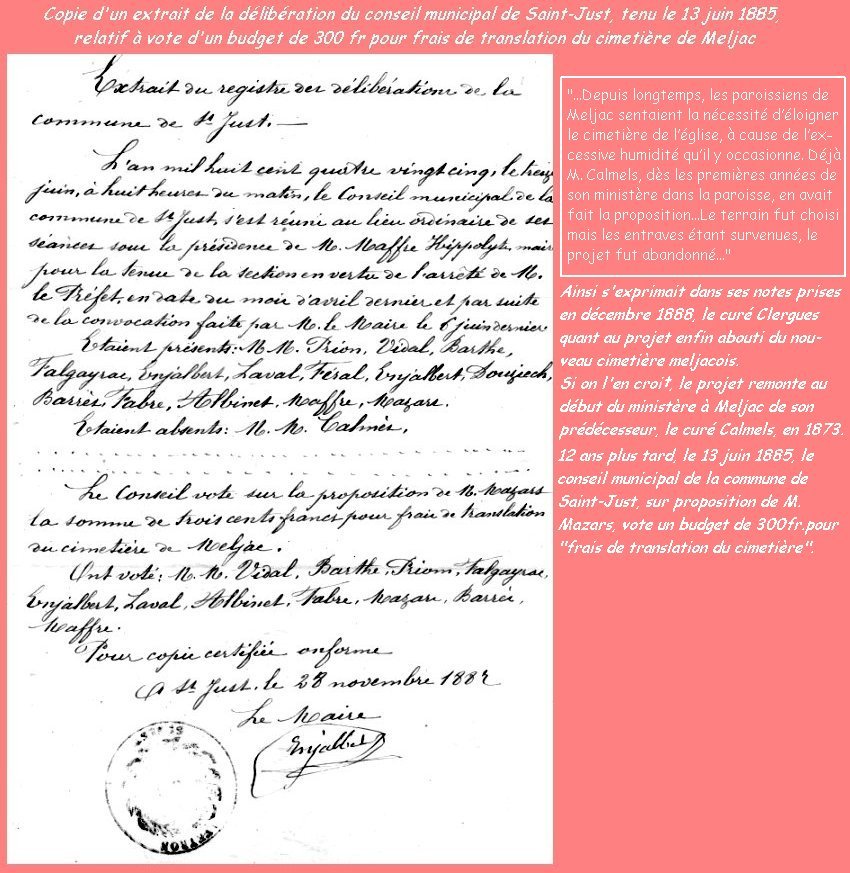 Copie d'un extrait de la délibération du conseil municipal de Saint-Just, tenu le 13 juin 1885,
relatif à vote d'un budget de 300 fr pour frais de translation du cimetière de Meljac
Extrait du registre des délibérations de la
commune de St Just. —
L'an mil huit cent quatre vingt cinq, le treize
juin, à huit heures du matin, le Conseil municipal de la
commune de St Just, s'est réuni au lieu ordinaire de ses
séances sous la présidence de M. Maffre Hippolyte, maire
pour la tenue de la section en vertu de l'arrêté de M.
le Préfet, en date du mois d'avril dernier et par suite
de la convocation faite par M. le Maire le 6 juin dernier
Etaient présents: M M. Prion, Vidal, Barthe,
Falgayrac, Enjalbert, Laval, Féral, Enjalbert, Douziech,
Barrès, Fabre, Albinet, Maffre, Mazars.
Etaient absents: M. M. Calmès.
Le Conseil vote sur la proposition de M. Mazars
la somme de trois cents francs pour frais de translation
du cimetière de Meljac.
Ont voté: M. M. Vidal, Barthe, Priom, Falgayrac,
Enjalbert, Laval, Albinet, Fabre, Mazars, Barrès,
Maffre.
Pour copie certifiée onforme
A St Just, le 28 novembre
Le Maire
Enjalbert
"...Depuis longtemps, les paroissiens de
Meljac sentaient la nécessité d'éloigner
le cimetière de l'église, à cause de l'ex-
cessive humidité qu'il y occasionne. Déjà
M. Calmels, dès les premières années de
son ministère dans la paroisse, en avait
fait la proposition...Le terrain fut choisi
mais les entraves étant survenues, le
projet fut abandonné..."
Ainsi s'exprimait dans ses notes prises
en décembre 1888, le curé Clergues
quant au projet enfin abouti du nou-
veau cimetière meljacois.
Si on l'en croit, le projet remonte au
début du ministère à Meljac de son
prédécesseur, le curé Calmels, en 1873.
12 ans plus tard, le 13 juin 1885, le
conseil municipal de la commune de
Saint-Just, sur proposition de M.
Mazars, vote un budget de 300fr.pour
"frais de translation du cimetière".